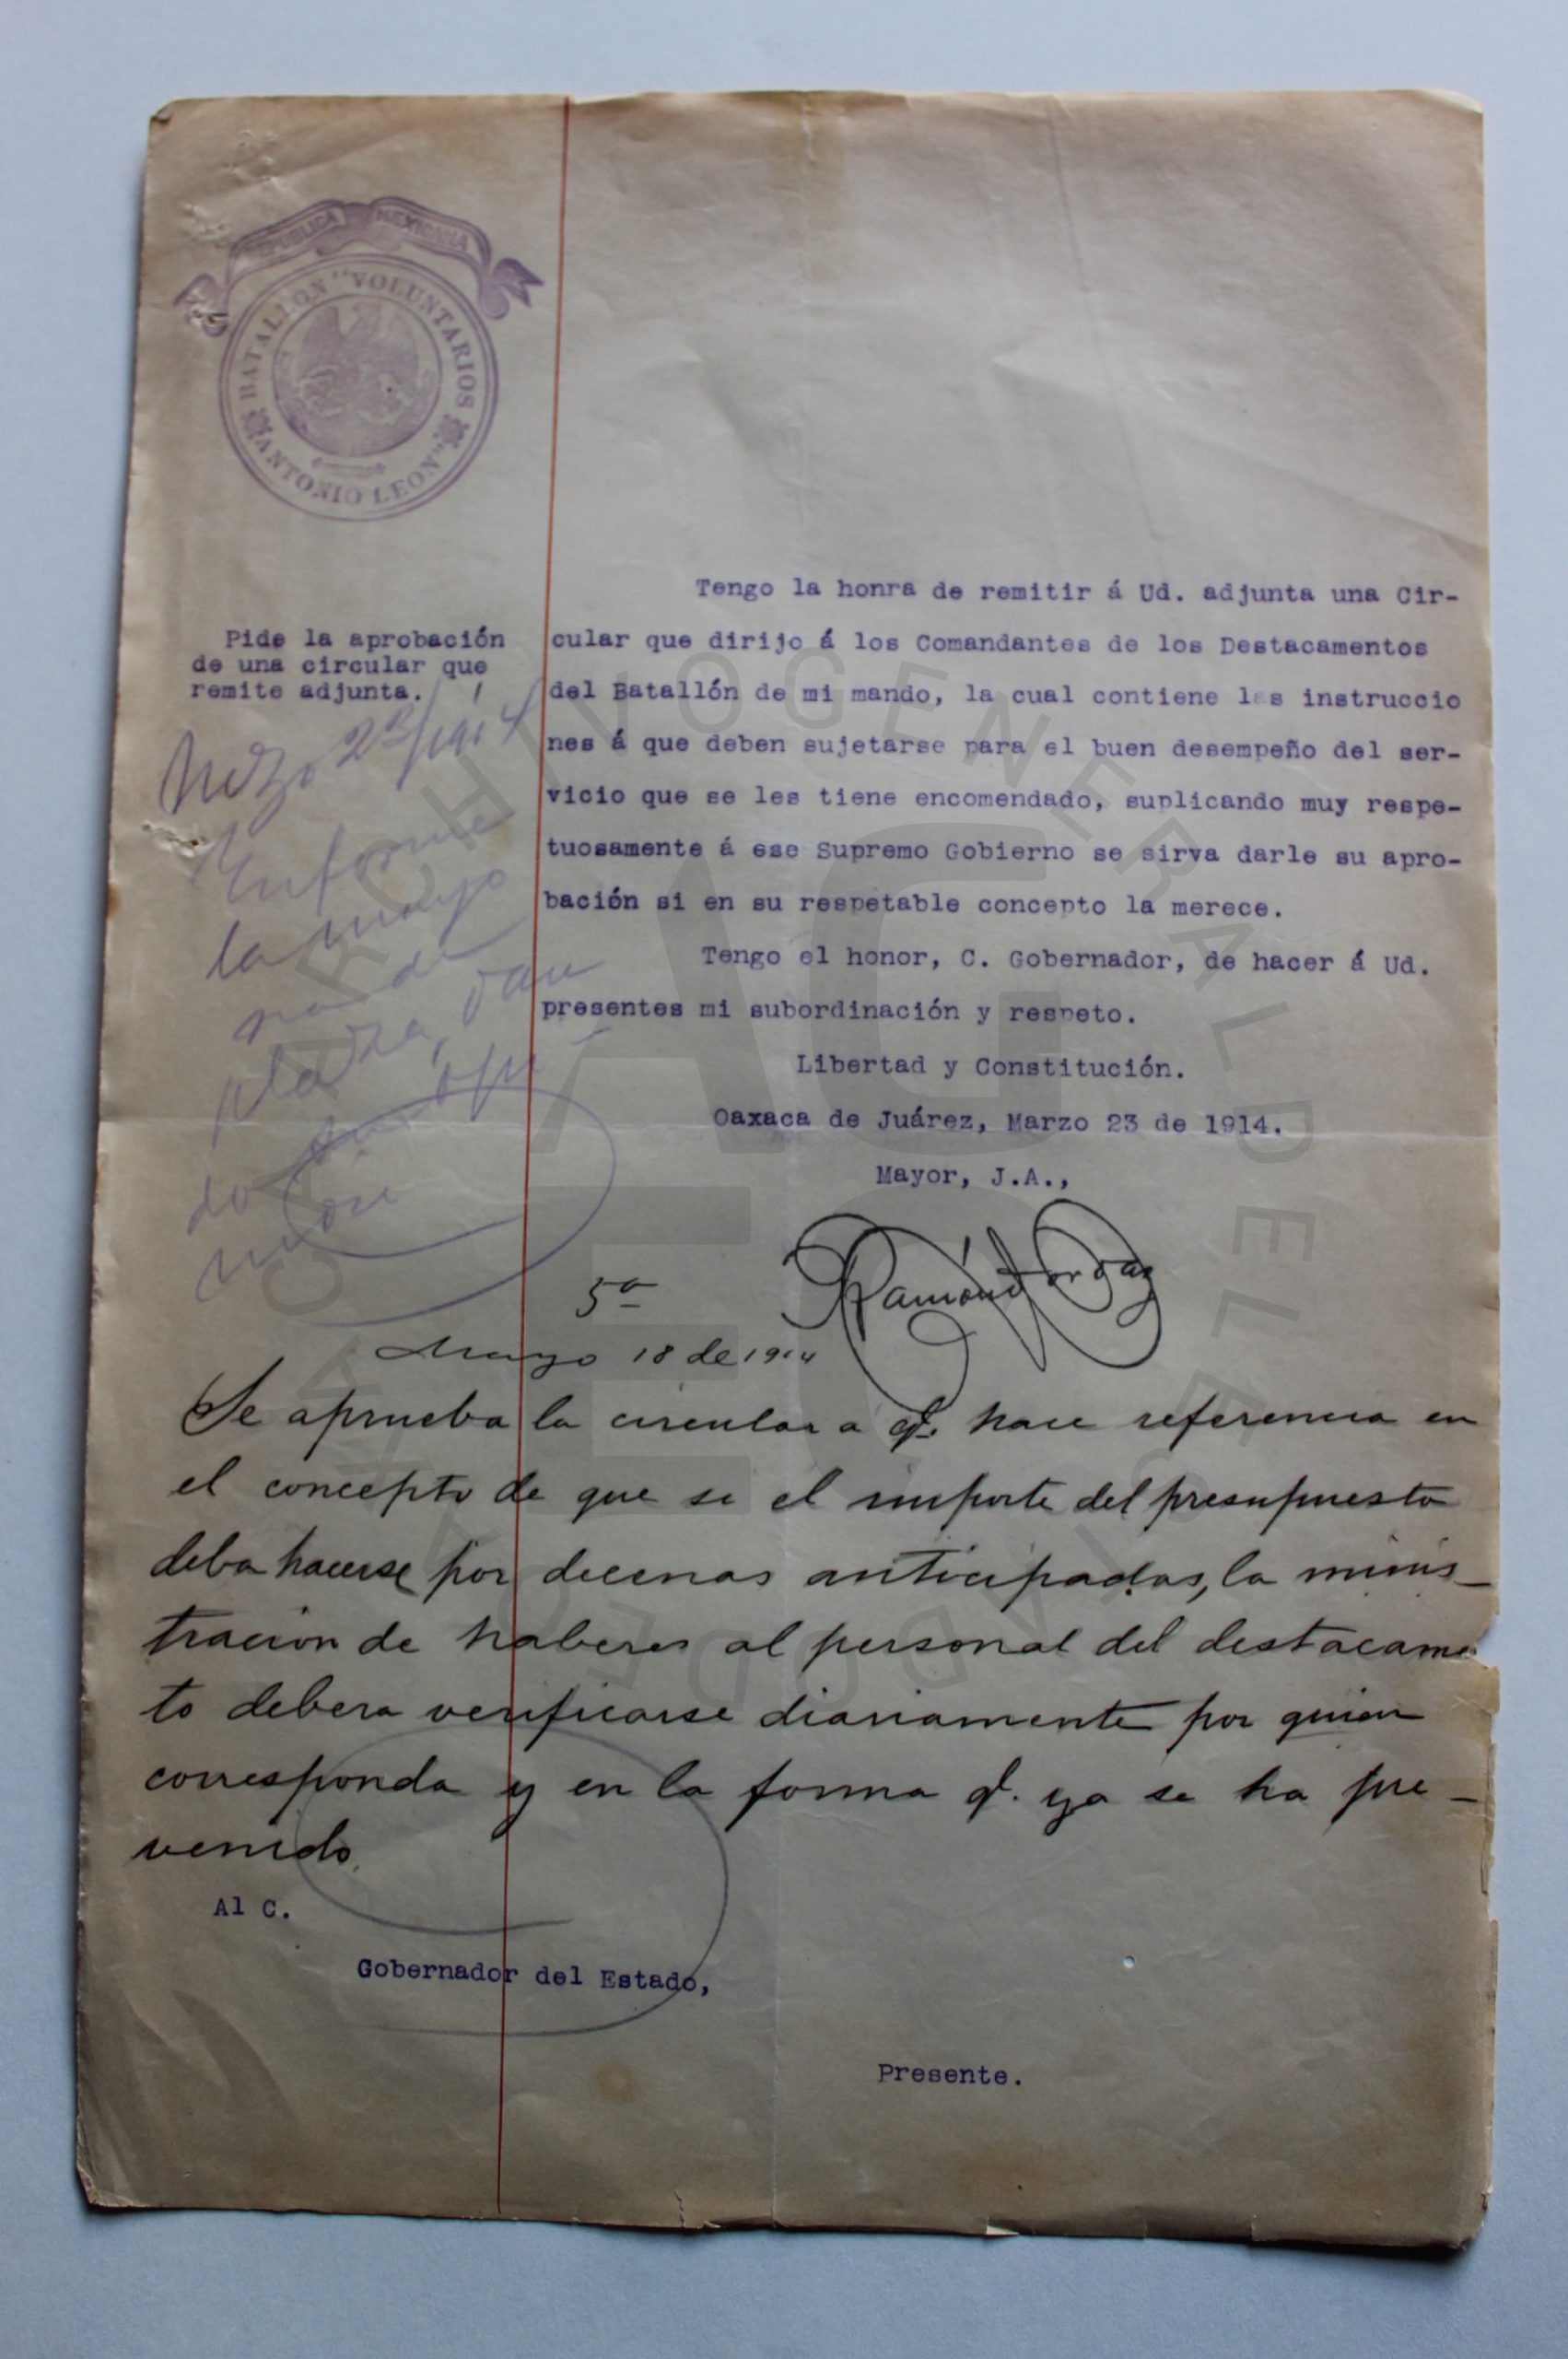 REPUBLICA MEXICANA
BATALLON "VOLUNTARIOS
ANTONIO LEON"
Pide la aprobación
de una circular que
remite adjunta.
Mrzo 23/1914
Informe
la mayo
ria de
plaza, dan
do su opi
nión
Tengo la honra de remitir á Ud. adjunta una Cir-
cular que dirijo á los Comandantes de los Destacamentos
del Batallón de mi mando, la cual contiene las instruccio
nes á que deben sujetarse para el buen desempeño del ser-
vicio que se les tiene encomendado, suplicando muy respe-
tuosamente á ese Supremo Gobierno se sirva darle su apro-
bación si en su respetable concepto la merece.
Tengo el honor, C. Gobernador, de hacer á Ud.
presentes mi subordinación y respeto.
Libertad y Constitución.
Oaxaca de Juárez, Marzo 23 de 1914.
Mayor, J.A.,
Ramón
5ª
Mayo 18 de 1914
Se aprueba la circular a q. hace referencia en
el concepto de que si el importe del presupuesto
deba hacerse por decenas anticipadas, la minis_
tracion de haberes al personal del destacame
to debera verificarse diariamente por quien
corresponda y en la forma q. ya se ha pre_
venido.
Al C.
Gobernador del Estado,
Presente.
ARCHIVO GENERAL DEL ESTADO DE OAXACA
AG
EO